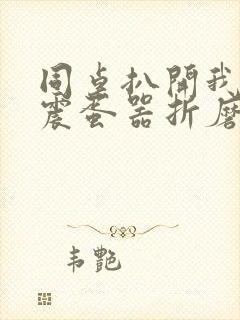 同桌扒開我
震蛋器折磨
韦艷